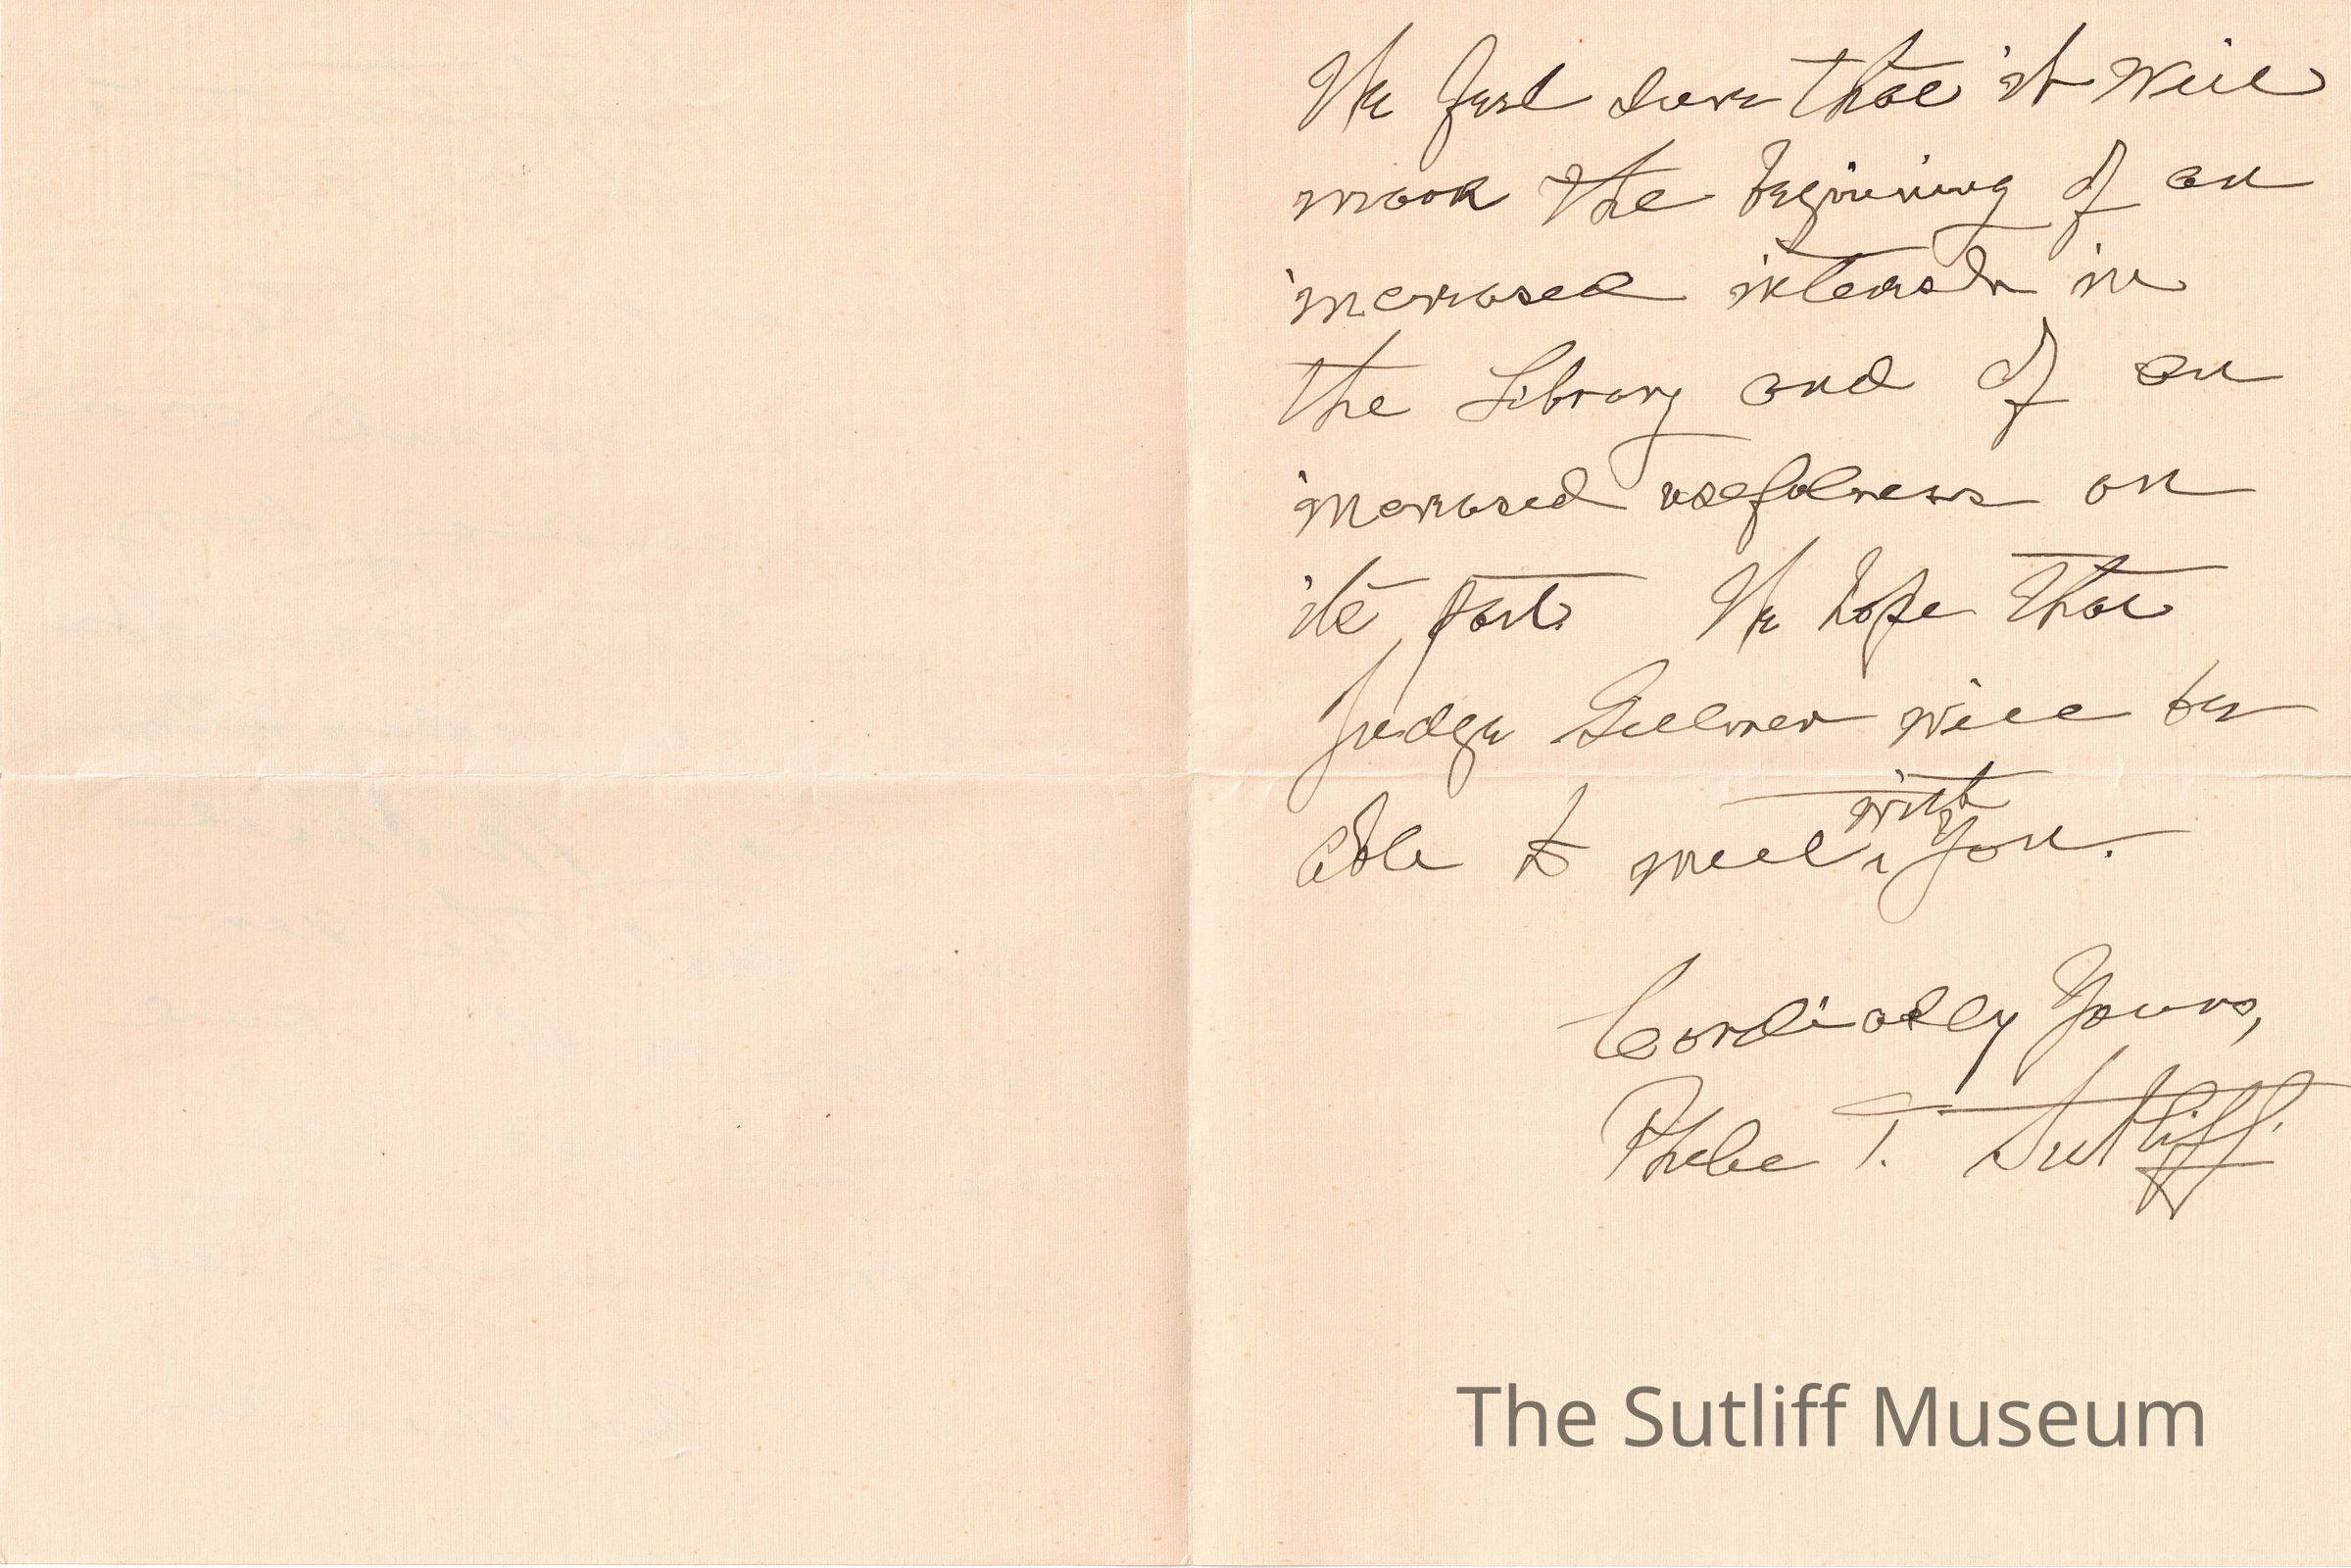 We feel sure that it will
mark the beginning of an
increased interest in
the Library and of an
increased usefulness on
its part. We hope that
Judge Gillmer will be
able to meet with you.
Cordially Yours,
Phebe T. Sutliff.
The Sutliff Museum